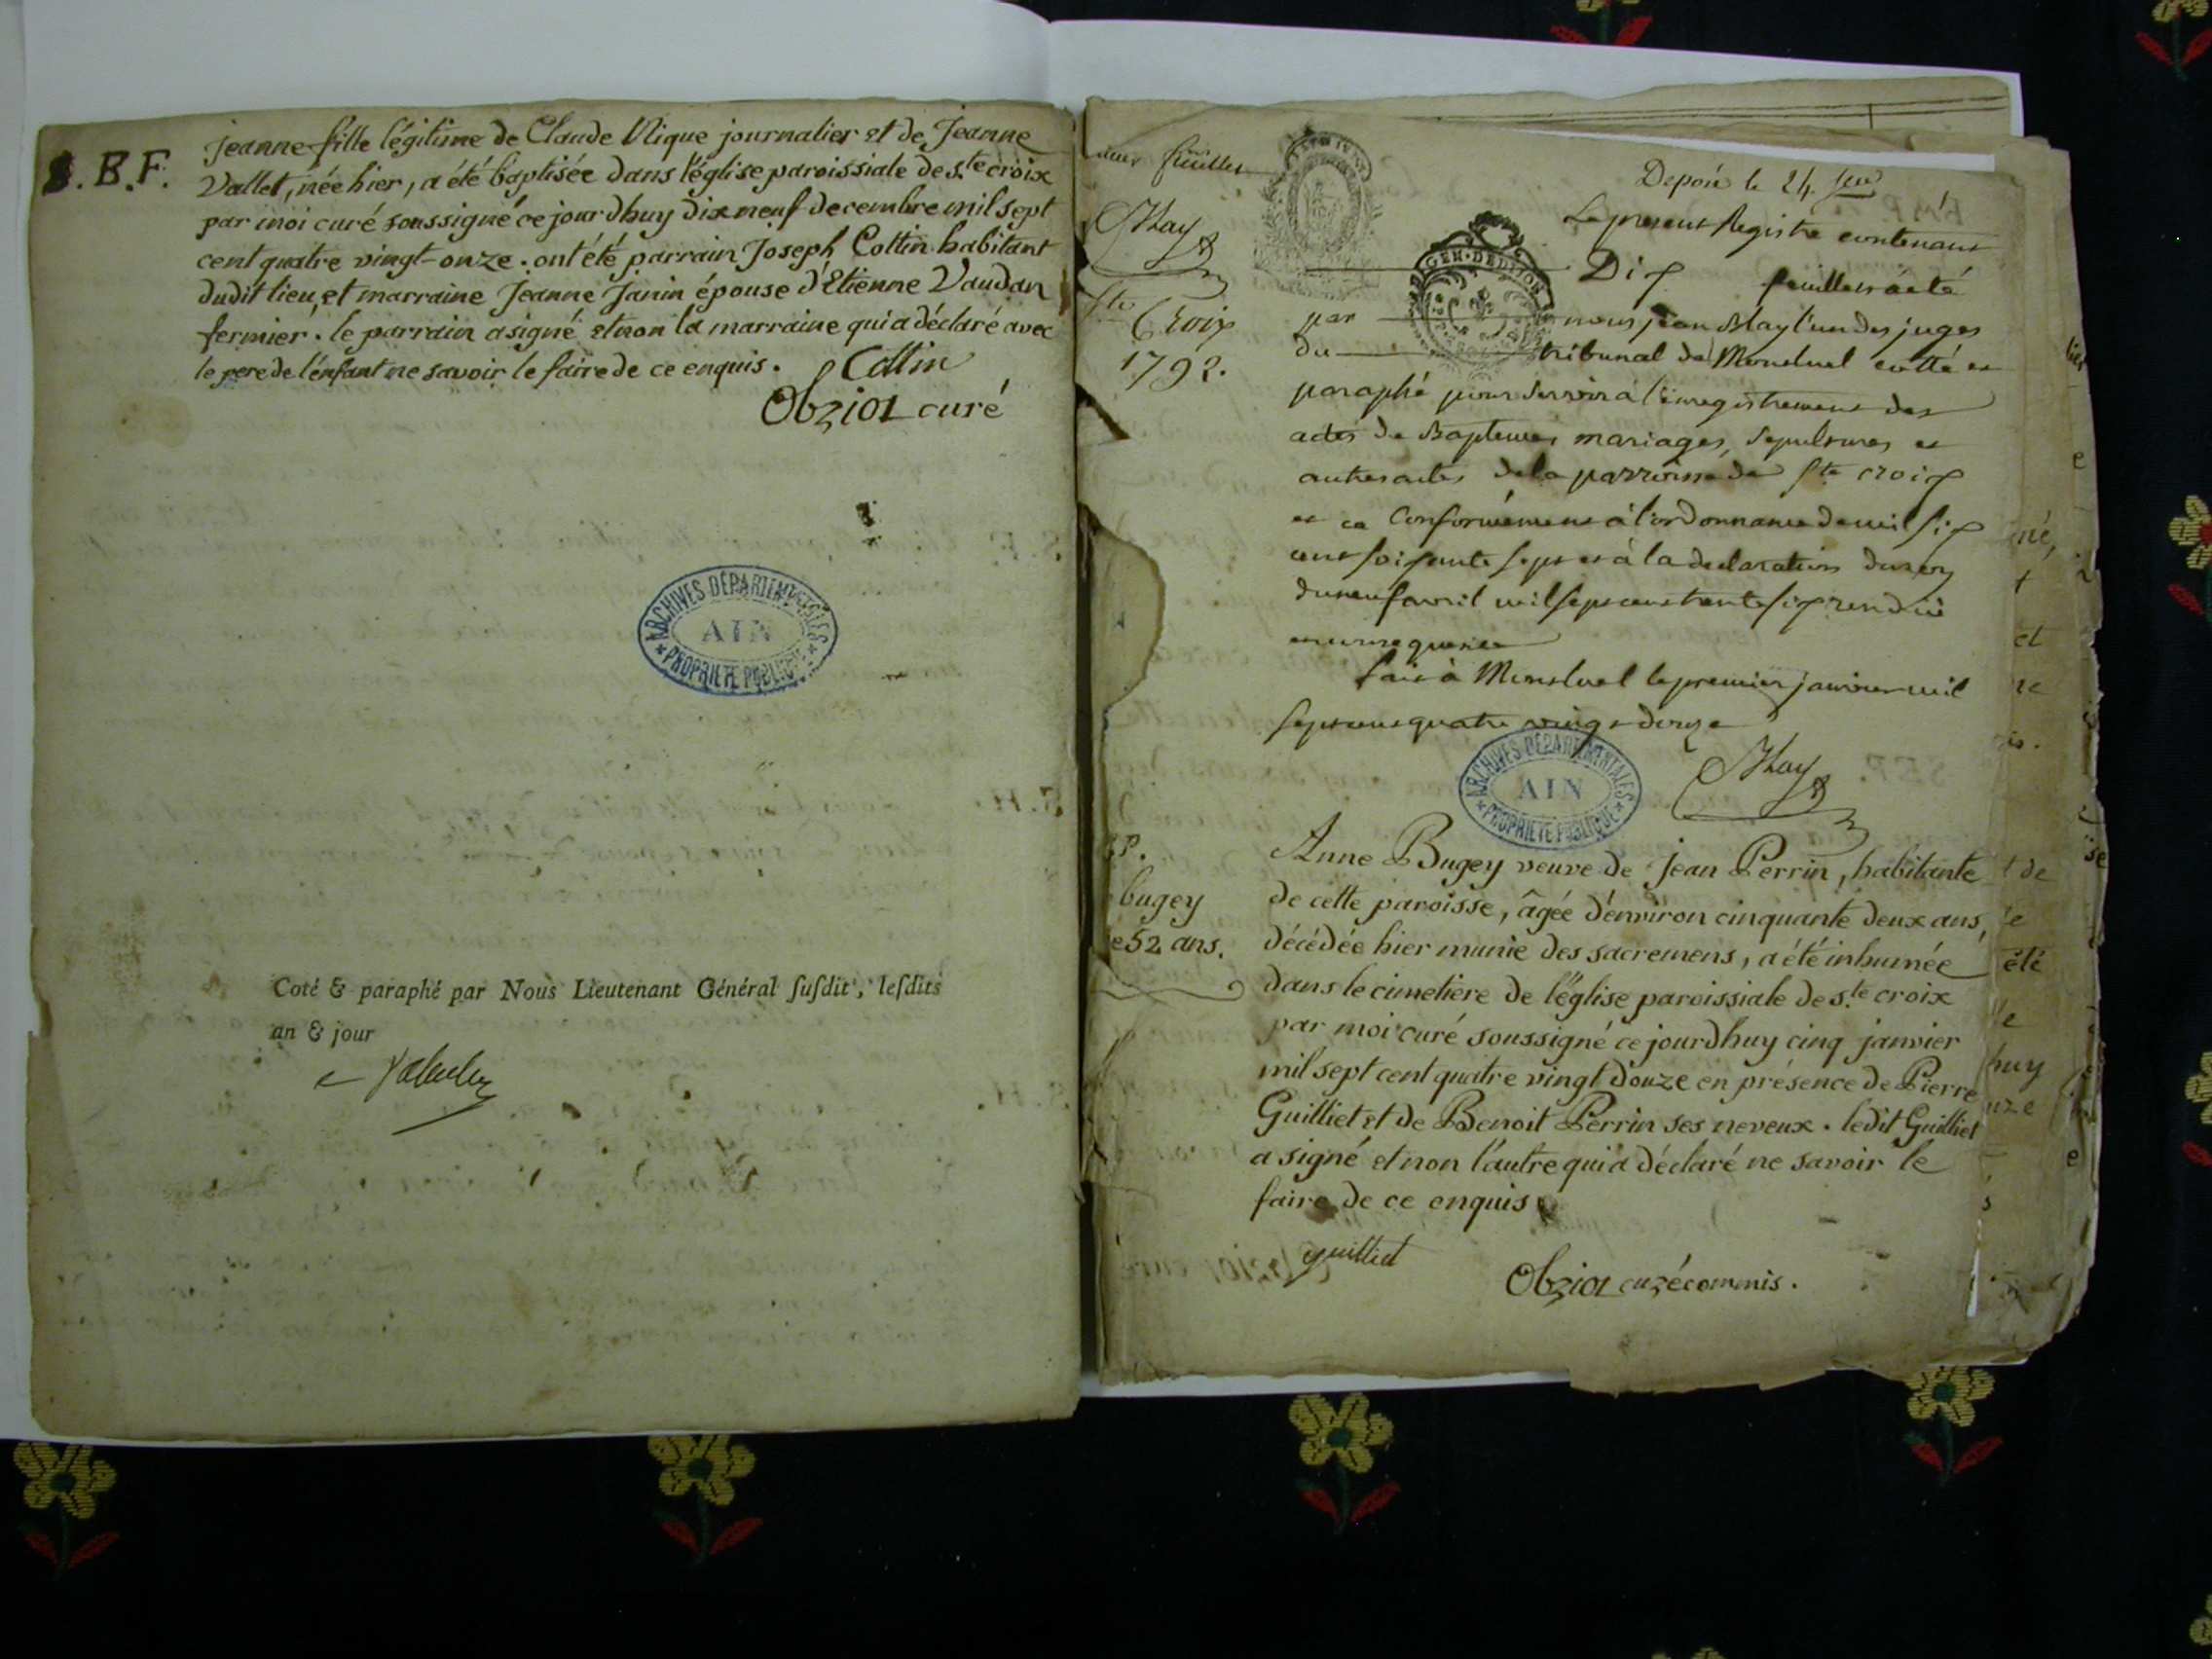 S.B.F.
Jeanne fille légitime de Claude Nique journalier et de Jeanne
Vallet, née hier, a été baptisée dans l'église paroissiale de s.te croix
par moi curé soussigné ce jourdhuy dix neuf decembre mil sept
cent quatre vingt-onze. ont été parrain Joseph Cottin habitant
dudit lieu, et marraine Jeanne Janin épouse d'Etienne Vaudan
fermier. le parrain a signé et non la marraine qui a déclaré avec
le pere de l'enfant ne savoir le faire de ce enquis. Cottin
Obrior curé
ARCHIVES DÉPARTEMENTALES
AIN
PROPRIÉTÉ PUBLIQUE
Coté & paraphé par Nous Lieutenant Général susdit, lesdits
an & jour
feuillet
May
Ste
Croix
1792.
Deposé le 24.
Le present Registre contenant
Dix feuillets a été
par nous jean May l'un des juges
du tribunal de Montluel cotté et
paraphé pour servir à l'enregistrement des
actes de Baptemes, mariages, sepultures, et
autres actes de la parroisse de Ste croix
et ce Conformément à l'ordonnance de mil six
cent soixante sept et à la declaration du roy
du neuf avril mil sept cent trente six rendue
en consequence
fait à Montluel le premier janvier mil
sept cent quatre vingt douze
May
ARCHIVES DÉPARTEMENTALES
AIN
PROPRIÉTÉ PUBLIQUE
bugey
e 52 ans.
Anne Bugey veuve de Jean Perrin, habitante
de cette paroisse, âgée d'environ cinquante deux ans,
décédée hier munie des sacremens, a été inhumée
dans le cimetière de l'église paroissiale de s.te croix
par moi curé soussigné ce jourdhuy cinq janvier
mil sept cent quatre vingt douze en présence de Pierre
Guilliet et de Benoit Perrin ses neveux. ledit Guilliet
a signé et non l'autre qui a déclaré ne savoir le
faire de ce enquis.
guilliet
Obrior curé commis.